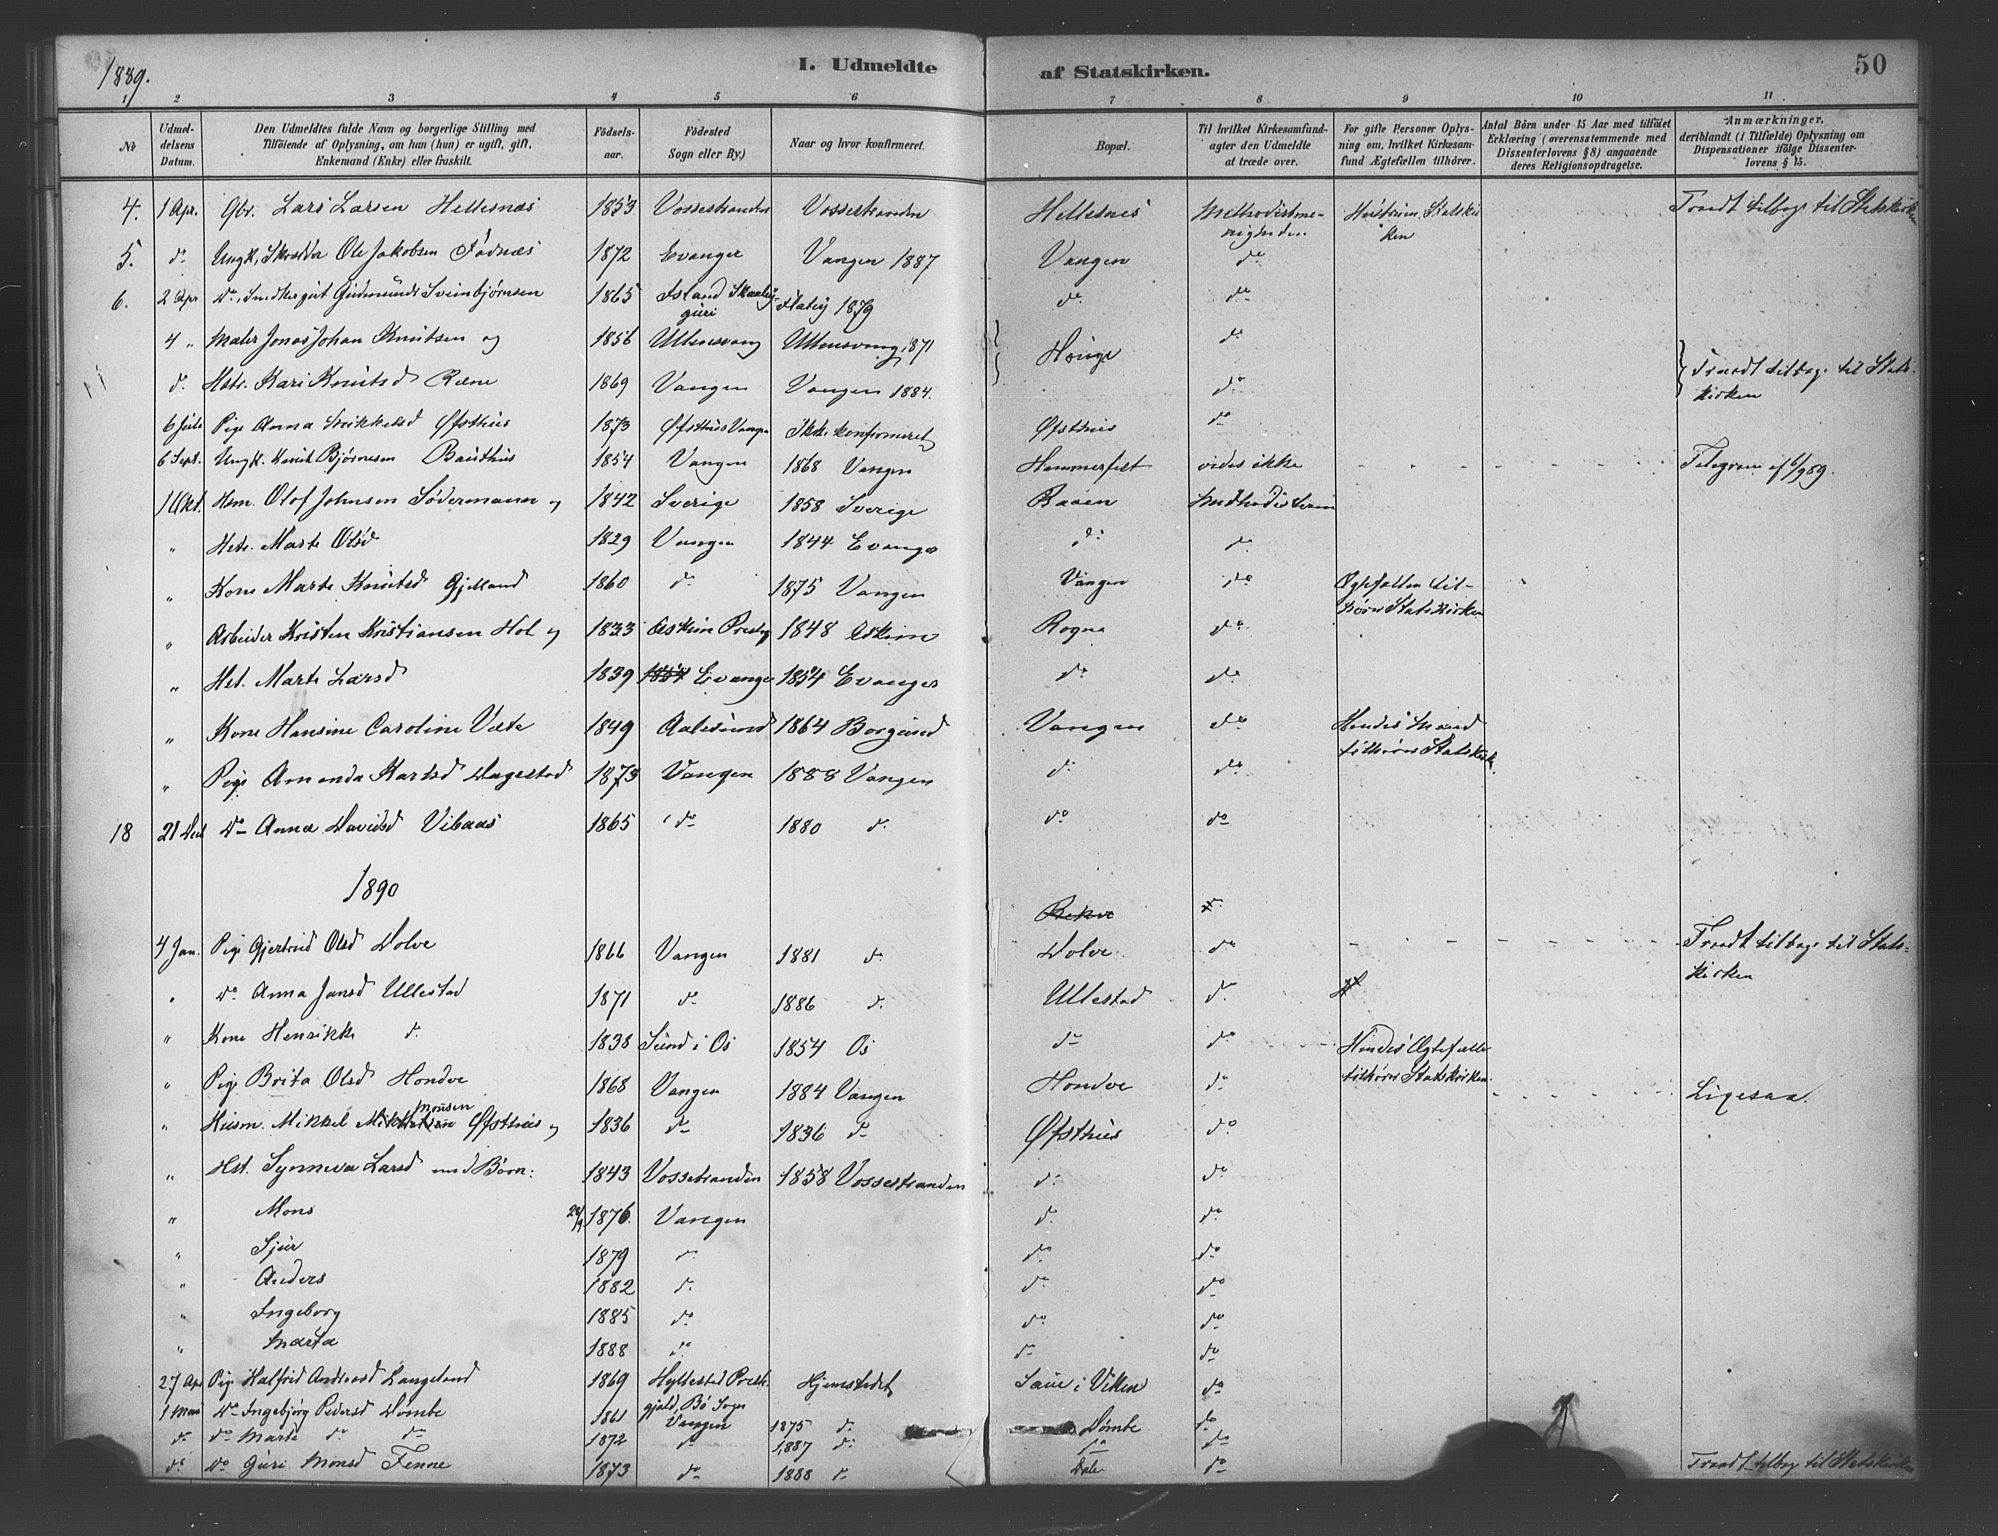 1889.
I. Udmeldte af Statskirken.
50
1 2 3 4 5 6 7 8 9 10 11
No
Udmel-
delsens
Datum.
Den Udmeldtes fulde Navn og borgerlige Stilling med
Tilföiende af Oplysning, om han (hun) er ugift, gift,
Enkemand (Enke) eller fraskilt.
Födsels-
aar.
Födested
Sogn eller By.)
Naar og hvor konfirmeret.
Bopæl.
Til hvilket Kirkesamfund
agter den Udmeldte
at træde over.
For gifte Personer Oplys-
ning om, hvilket Kirkesam-
fund Ægtefællen tilhörer.
Antal Börn under 15 Aar med tilföiet
Erklæring (overensstemmende med
Dissenterlovens §8) angaaende
deres Religionsopdragelse.
Anmærkninger,
deriblandt (i Tilfælde) Oplysning om
Dispensationer ifölge Dissenter-
lovens § 15.
4. 1 Apr. Gbr. Lars Larsen Hellesnæs 1853 Vossestranden Vossestranden Hellesnæs Methodistme-
nigheden Hustruen Statskir
ken Traadt tilbage til Statskirken
5. do Ungk. Ole Jakobsen Fadnæs 1872 Evanger Vangen 1887 Vangen do
6. 2 Apr do Gudmundr Sveinbjørnsen 1865 Island Flatey 1879 do do
4 " Maler Jonas Johan Knutsen og 1856 Ullensvang Ullensvang 1871 Houge do
do Hstr. Kari Knutsd Rene 1869 Vangen Vangen 1884. do Traadt tilbage til Stats-
kirken
6 Juli Pige Anna Øfsthus 1873 Øfsthus Vangen Ikke konfirmeret Øfsthus do
6 Sept. Ungk. Knut Bjørnesen 1854 Vangen 1868 Vangen Hammerfest vides ikke Telegram af 6/9 89.
1 Okt. Hsm. Olof Johnsen Södermann og 1842 Sverige 1858 Sverige Methodisterne
" Hstr. Marte Olsd 1829 Vangen 1844 Evanger do do
" Kone Marte Knutsd Gjelland 1860 do 1875 Vangen Vangen do Ægtefællen til-
hører Statskirken
" Arbeider Kristen Kristiansen Hol og 1833 Askim Prestg 1848 Askim Rogne do
" Hst. Marte Larsd 1839 Evanger 1854 Evanger do do
" Kone Hansine Caroline 1849 Aalesund 1864 Borgund Vangen do Hendes Mand
tilhører Statskirk.
" Pige Amanda Karlsd Dagestad 1873 Vangen 1888 Vangen do do
18 21 Des do Anna Davidsd Vibaas 1865 do 1880 do do do
1890
4 Jan. Pige Gjertrud Olsd Dolve 1866 Vangen 1881 do Dolve do Traadt tilbage til Stats-
kirken
" do Anna Jansd Ullestad 1871 do 1886 do Ullestad do
" Kone Henrikke do 1838 Sund i Os 1854 Os do do Hendes Ægtefælle
tilhører Statskirken
" Pige Brita Olsd Hondve 1868 Vangen 1884 Vangen Hondve do Ligesaa.
" Husm. Mikkel Monsen Øfsthus og 1836 do 1836 do Øfsthus do
" Hst. Synneva Larsd med Børn: 1843 Vossestranden 1858 Vossestranden do do
" Mons 1876. Vangen do do
" Sjur 1879 do do do
" Anders 1882 do do do
" Ingeborg 1885 do do do
" Marta 1888 do do do
27 Apr Pige Halfrid Andersd Langeland 1869 Hyllestad Prest-
gjeld, Bø Sogn Hjemstedet do
1 Mai do Ingebjørg Pedersd Dømbe 1861 Vangen 1875 do Dømbe do
do do Marte do do 1872 do 1887 do do do
do do Guri Monsd Fenne 1873 do 1888 do do Traadt tilbage til Statskirken